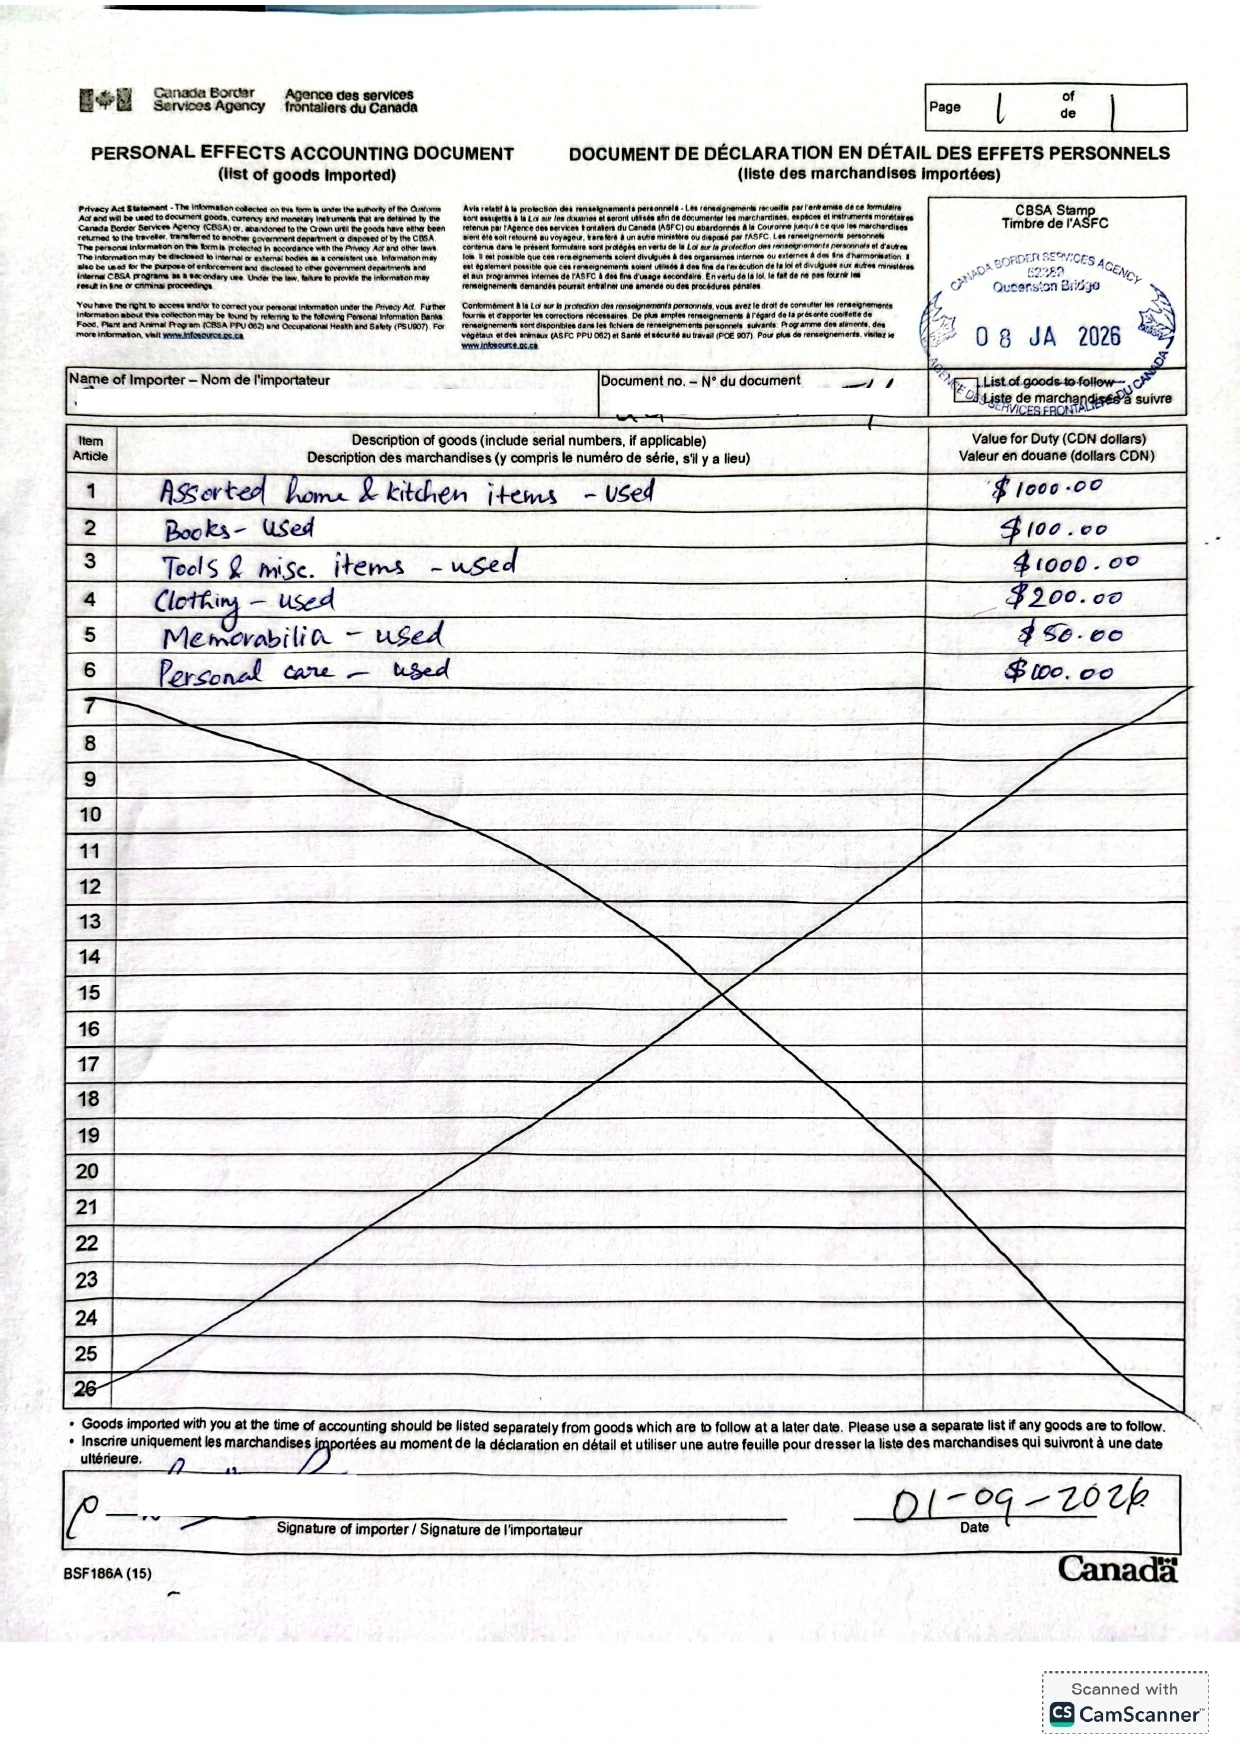 Canada Border Services Agency
Agence des services frontaliers du Canada
Page 1 of de 1
PERSONAL EFFECTS ACCOUNTING DOCUMENT
(list of goods imported)
DOCUMENT DE DÉCLARATION EN DÉTAIL DES EFFETS PERSONNELS
(liste des marchandises importées)
Privacy Act Statement - The information collected on this form is under the authority of the Customs
Act and will be used to document goods, currency and monetary instruments that are detained by the
Canada Border Services Agency (CBSA) or, abandoned to the Crown until the goods have either been
returned to the traveller, transferred to another government department or disposed of by the CBSA.
The personal information on this form is protected in accordance with the Privacy Act and other laws.
The information may be disclosed to internal or external bodies as a consistent use. Information may
also be used for the purpose of enforcement and disclosed to other government departments and
internal CBSA programs as a secondary use. Under the law, failure to provide the information may
result in fine or criminal proceedings.
You have the right to access and/or to correct your personal information under the Privacy Act. Further
information about this collection may be found by referring to the following Personal Information Banks
Food, Plant and Animal Program (CBSA PPU 062) and Occupational Health and Safety (PSU907). For
more information, visit www.infosource.gc.ca
Avis relatif à la protection des renseignements personnels - Les renseignements recueillis par l'entremise de ce formulaire
sont assujettis à la Loi sur les douanes et seront utilisés afin de documenter les marchandises, espèces et instruments monétaires
retenus par l'Agence des services frontaliers du Canada (ASFC) ou abandonnés à la Couronne jusqu'à ce que les marchandises
aient été soit retourné au voyageur, transféré à un autre ministère ou disposé par l'ASFC. Les renseignements personnels
contenus dans le présent formulaire sont protégés en vertu de la Loi sur la protection des renseignements personnels et d'autres
lois. Il est possible que ces renseignements soient divulgués à des organismes internes ou externes à des fins d'harmonisation. Il
est également possible que ces renseignements soient utilisés à des fins de l'exécution de la loi et divulgués aux autres ministères
et aux programmes internes de l'ASFC à des fins d'usage secondaire. En vertu de la loi, le fait de ne pas fournir les
renseignements demandés pourrait entraîner une amende ou des procédures pénales.
Conformément à la Loi sur la protection des renseignements personnels, vous avez le droit de consulter les renseignements
fournis et d'apporter les corrections nécessaires. De plus amples renseignements à l'égard de la présente cueillette de
renseignements sont disponibles dans les fichiers de renseignements personnels suivants: Programme des aliments, des
végétaux et des animaux (ASFC PPU 062) et Santé et sécurité au travail (POE 907). Pour plus de renseignements, visitez le
www.infosource.gc.ca
CBSA Stamp
Timbre de l'ASFC
CANADA BORDER SERVICES AGENCY
Queenston Bridge
08 JA 2026
AGENCE DES SERVICES FRONTALIERS DU CANADA
Name of Importer – Nom de l'importateur
Document no. – N° du document
List of goods to follow
Liste de marchandises à suivre
Item Article
Description of goods (include serial numbers, if applicable)
Description des marchandises (y compris le numéro de série, s'il y a lieu)
Value for Duty (CDN dollars)
Valeur en douane (dollars CDN)
1 Assorted home & kitchen items - used $1000.00
2 Books - used $100.00
3 Tools & misc. items - used $1000.00
4 Clothing - used $200.00
5 Memorabilia - used $50.00
6 Personal care - used $100.00
7
8
9
10
11
12
13
14
15
16
17
18
19
20
21
22
23
24
25
26
• Goods imported with you at the time of accounting should be listed separately from goods which are to follow at a later date. Please use a separate list if any goods are to follow.
• Inscrire uniquement les marchandises importées au moment de la déclaration en détail et utiliser une autre feuille pour dresser la liste des marchandises qui suivront à une date
ultérieure.
01-09-2026
Signature of importer / Signature de l'importateur
Date
BSF186A (15)
Canada
Scanned with
CS CamScanner